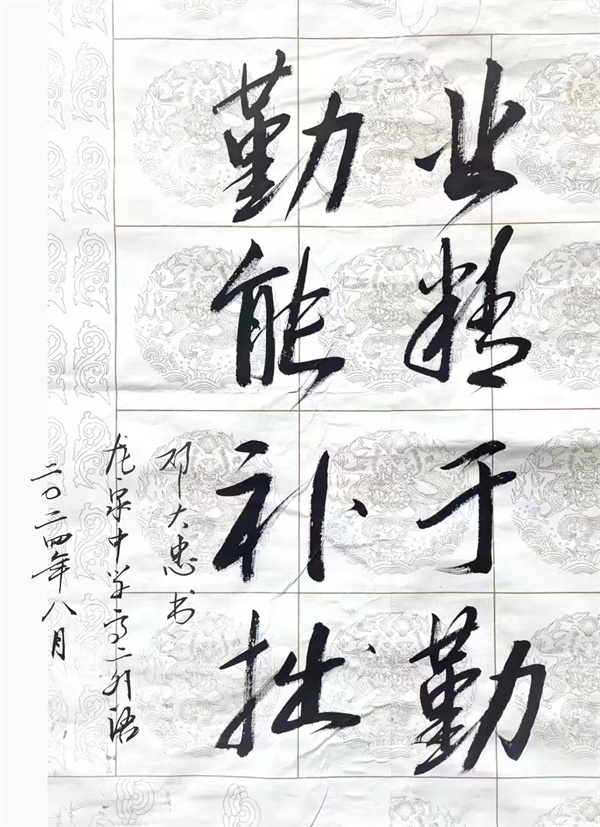 业精于勤
勤能补拙
邓大忠书
龙泉中学高二外语
二〇二四年八月